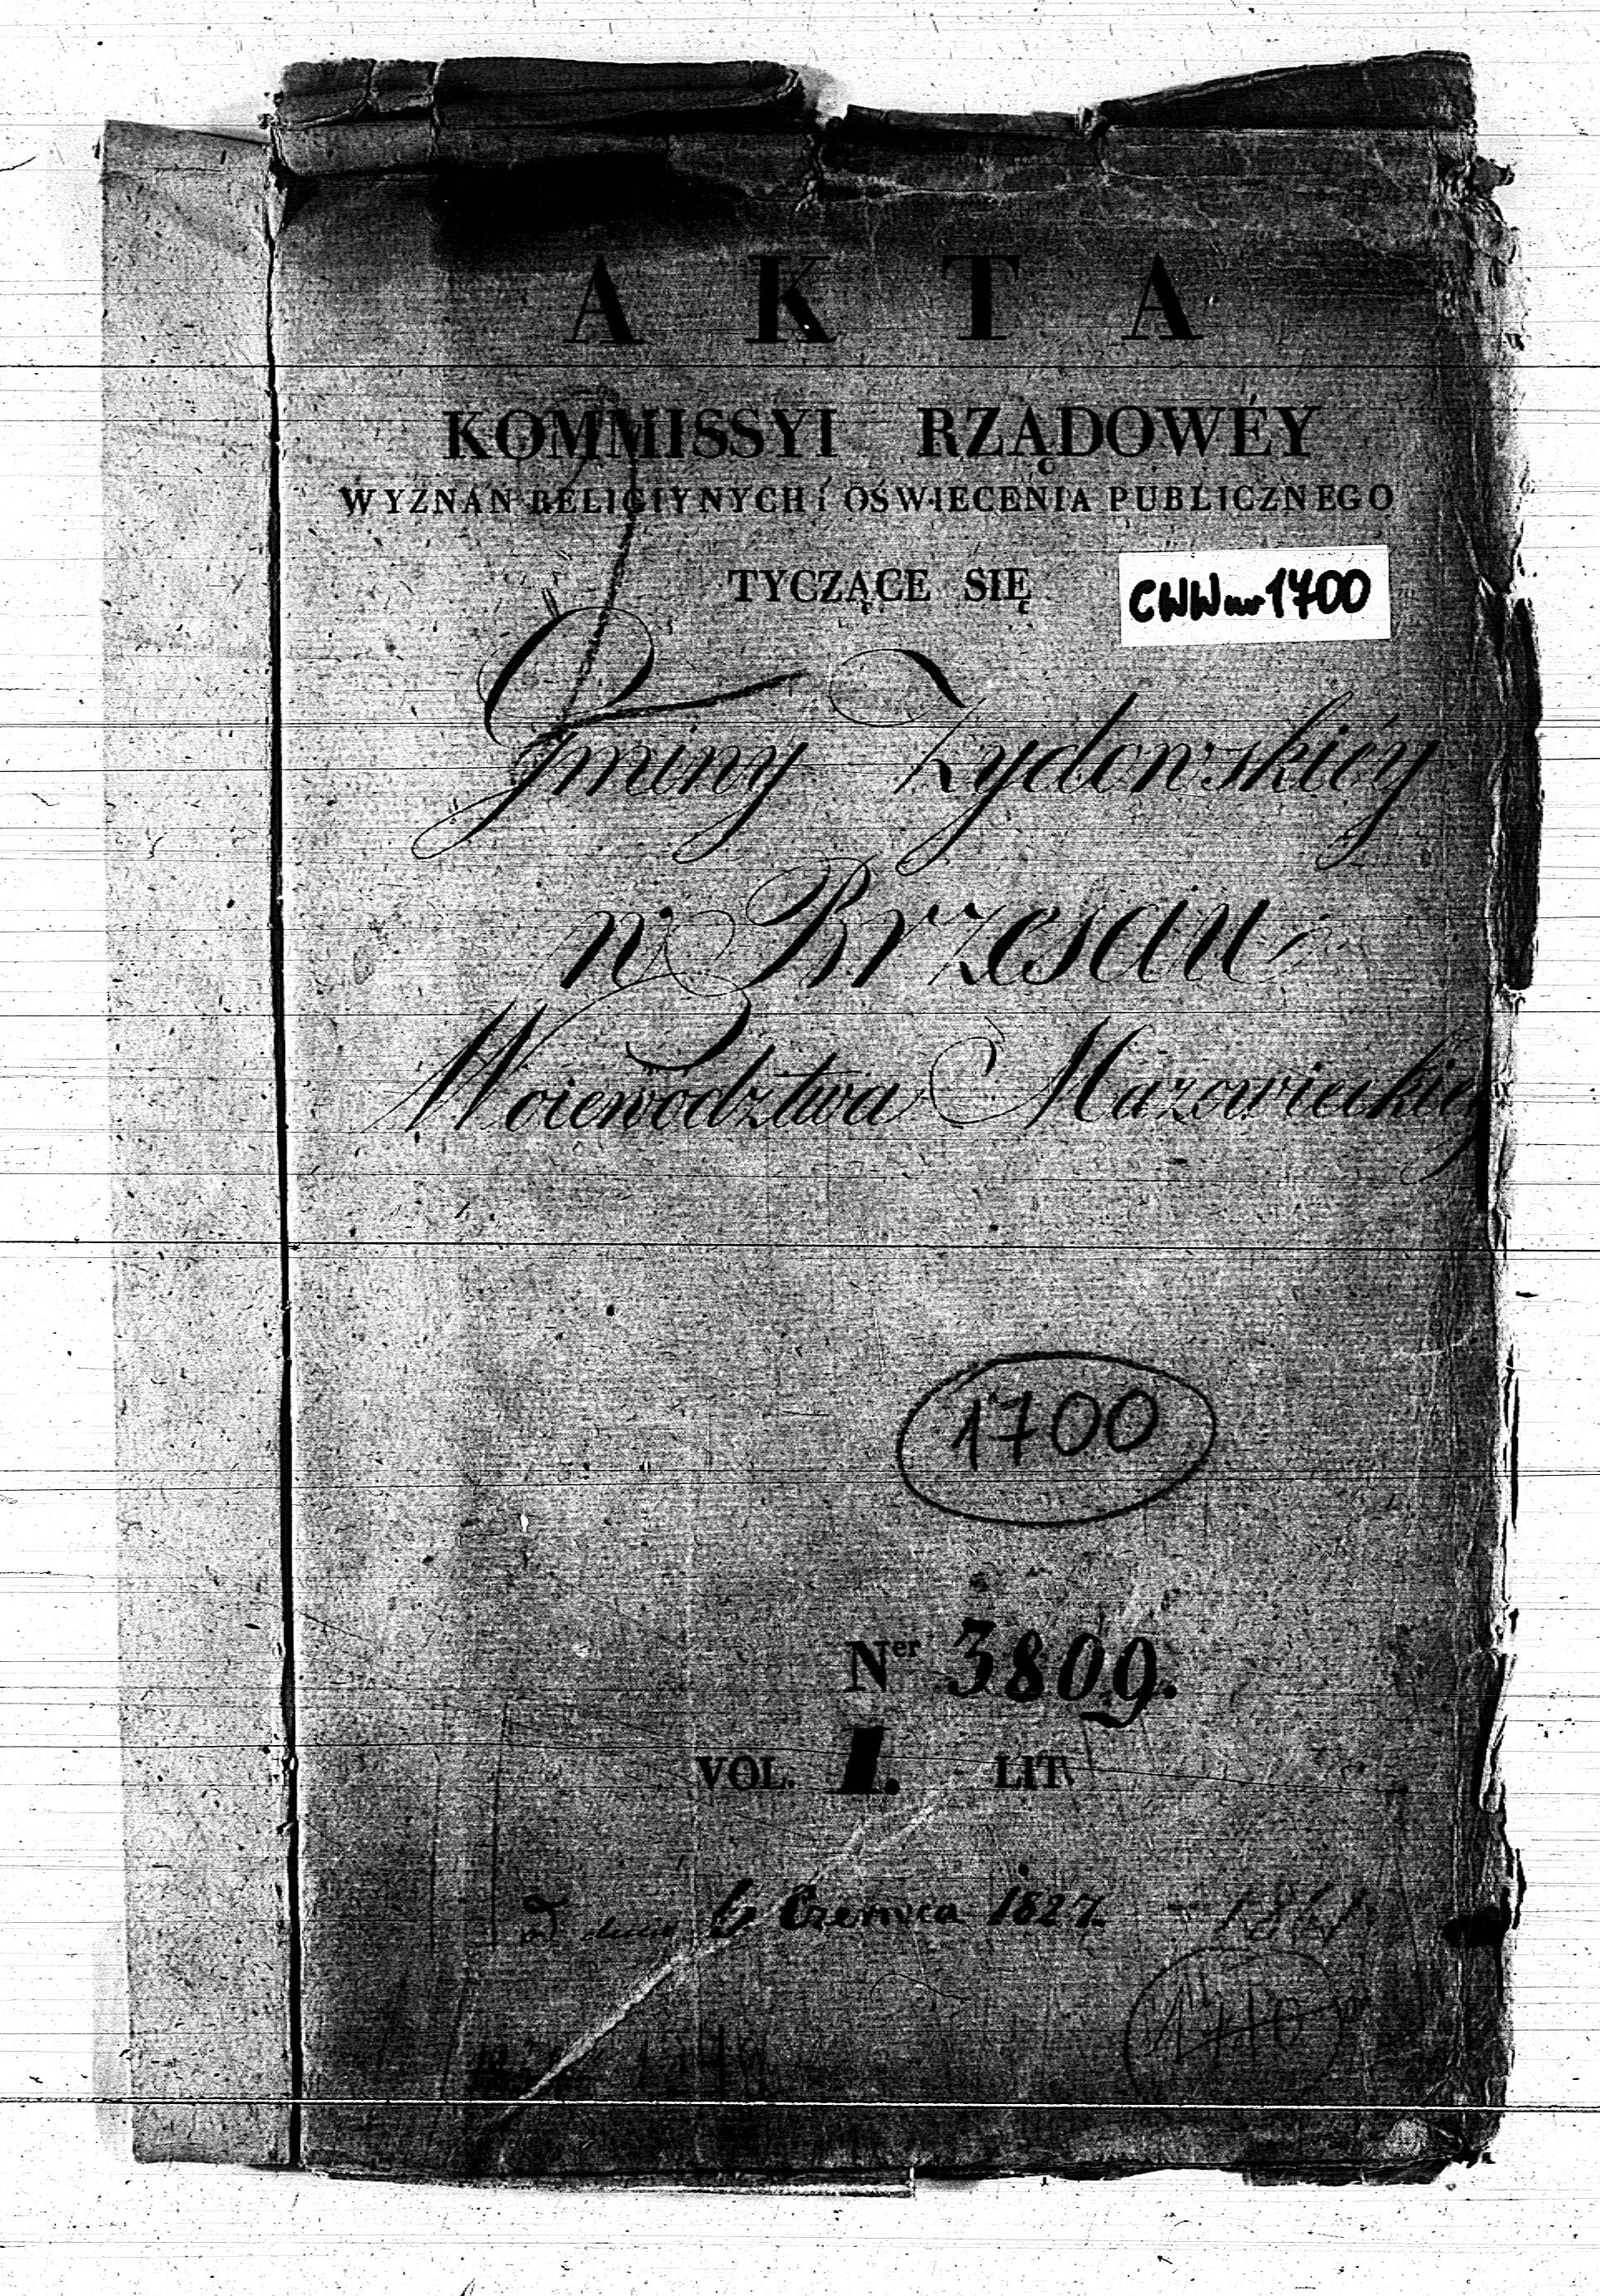 AKTA
KOMMISSYI RZĄDOWÉY
WYZNAŃ RELIGIYNYCH i OŚWIECENIA PUBLICZNEGO
TYCZĄCE SIĘ
CWW nr 1700
Gminy Żydowskiéy
w Brzesciu
Woiewództwa Mazowieckie
1700
Ner 3809.
VOL. I. LIT.
od dnia 6 Czerwca 1827.